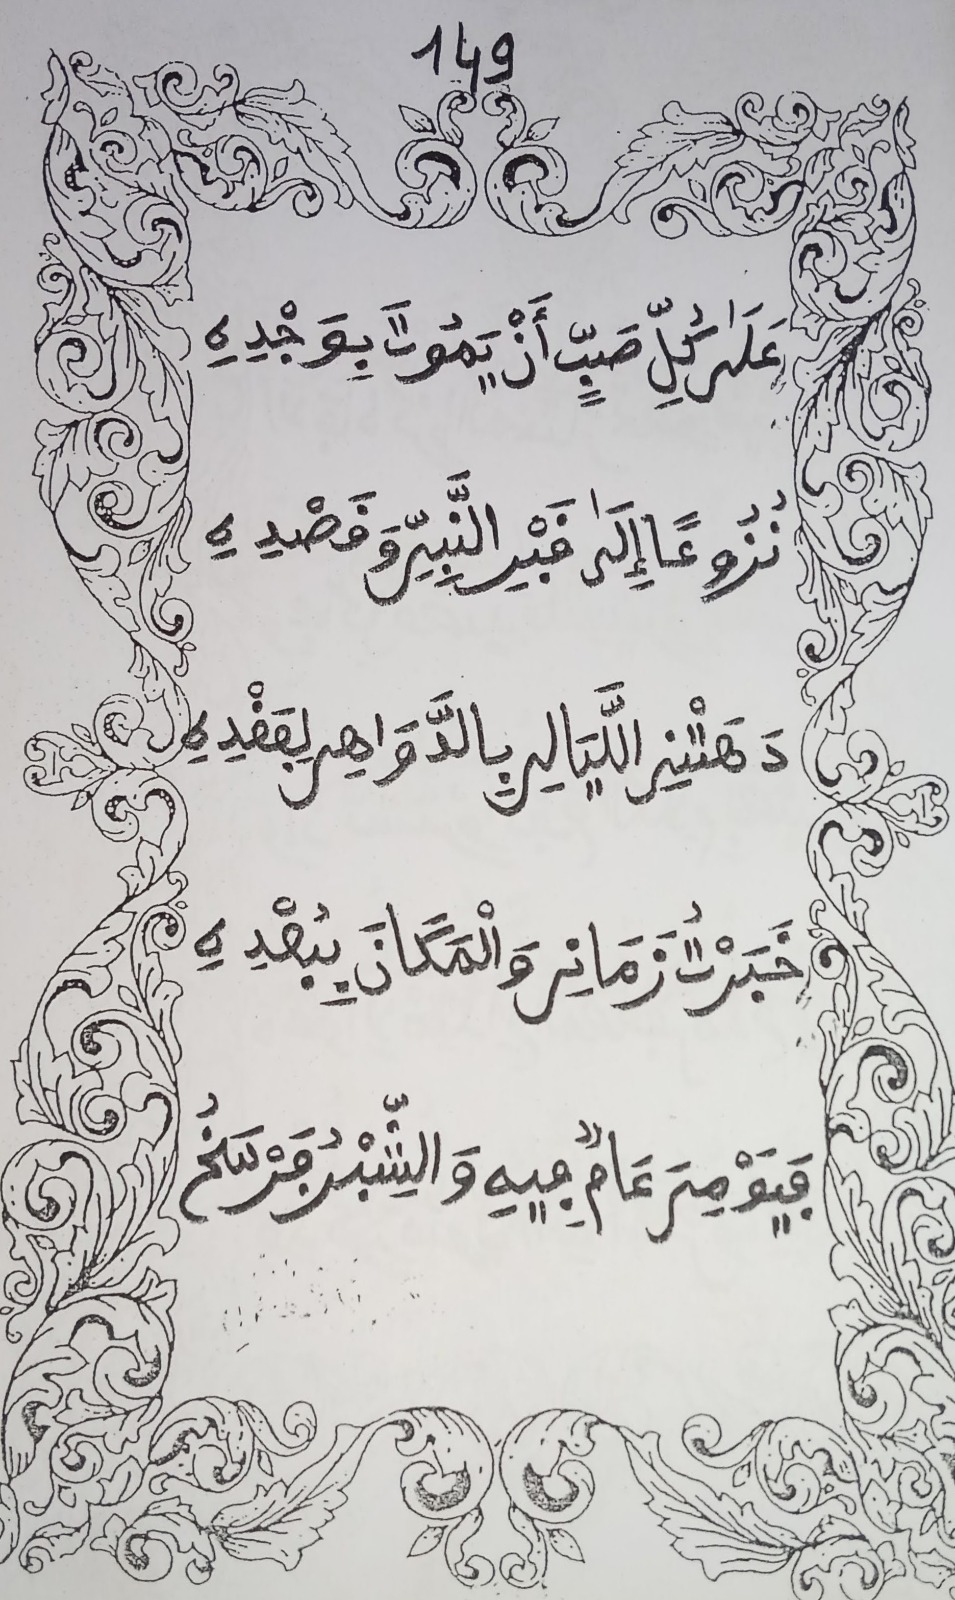 149
عَلَىٰ كُلِّ صَبٍّ أَنْ يَمُوتَ بِوَجْدِهِ
نُزُوعًا إِلَىٰ قَبْرِ النَّبِيِّ وَقَصْدِهِ
دَهَتْنِي اللَّيَالِي بِالدَّوَاهِي لِفَقْدِهِ
خَبَرْتُ زَمَانِي وَالْمَكَانَ بِبُعْدِهِ
فَيَوْمِيَ عَامٌ فِيهِ وَالشِّبْرُ فَرْسَخُ